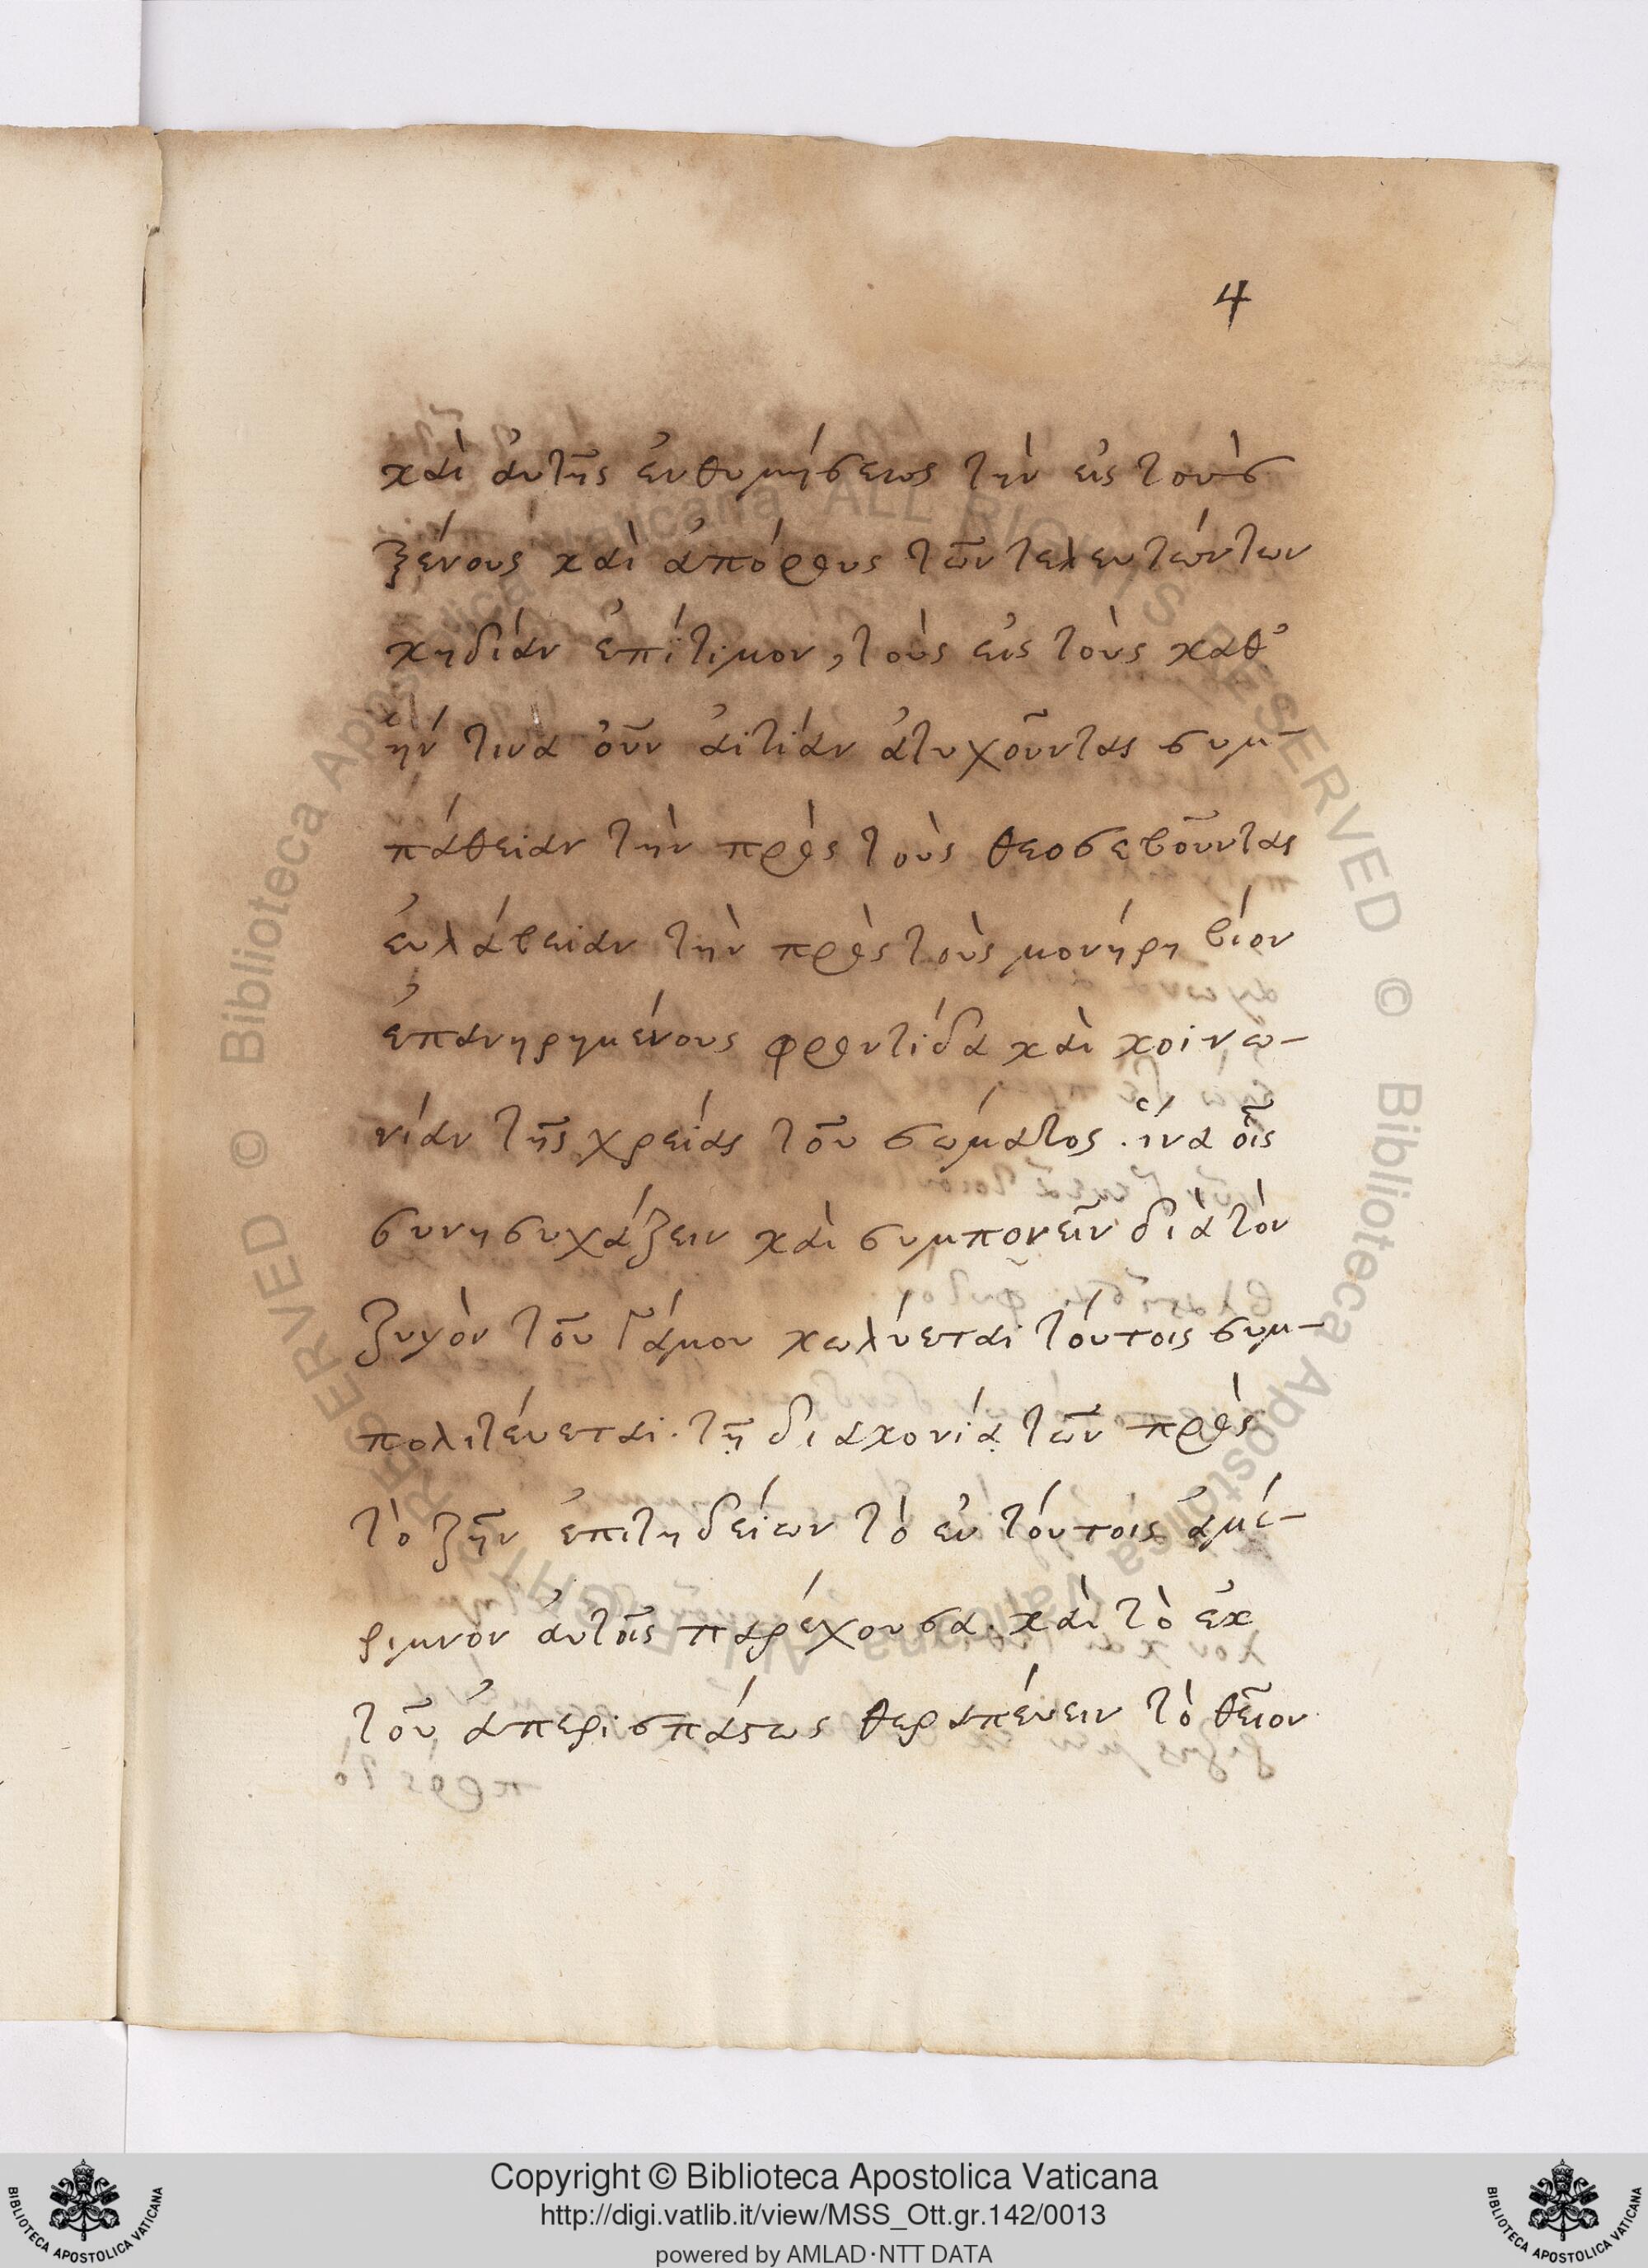 4
καὶ ἀυτῆς ἐνθυμήσεως τὴν εἰς τοὺς
ξένους καὶ ἀπόρους τῶν τελευτώντων
κηδίαν ἐπίτιμον, τοὺς εἰς τοὺς καθ᾽
ἥν τινα οὖν ἀιτίαν ἀτυχοῦντας συμ-
πάθειαν τὴν πρὸς τοὺς θεοσεβοῦντας
ἐυλάβειαν τὴν πρὸς τοὺς μονήρη βίον
ἐπανηρημένους φροντίδα καὶ κοινω-
νίαν τῆς χρείας τοῦ σώματος. ἵνα οἷς
συνησυχάζειν καὶ συμπονεῖν διὰ τὸν
ζυγὸν τοῦ Γάμου κωλύεται τόυτοις συμ-
πολιτέυεται. τῇ διακονίᾳ τῶν πρὸς
τὸ ζῆν ἐπιτηδείων τὸ ἐν τόυτοις ἀμέ-
ριμνον ἀυτοῖς παρέχουσα. καὶ τὸ ἐκ
τοῦ ἀπερισπάστως θεραπέυειν τὸ θεῖον
Copyright © Biblioteca Apostolica Vaticana
http://digi.vatlib.it/view/MSS_Ott.gr.142/0013
powered by AMLAD·NTT DATA
BIBLIOTECA APOSTOLICA VATICANA
BIBLIOTECA APOSTOLICA VATICANA